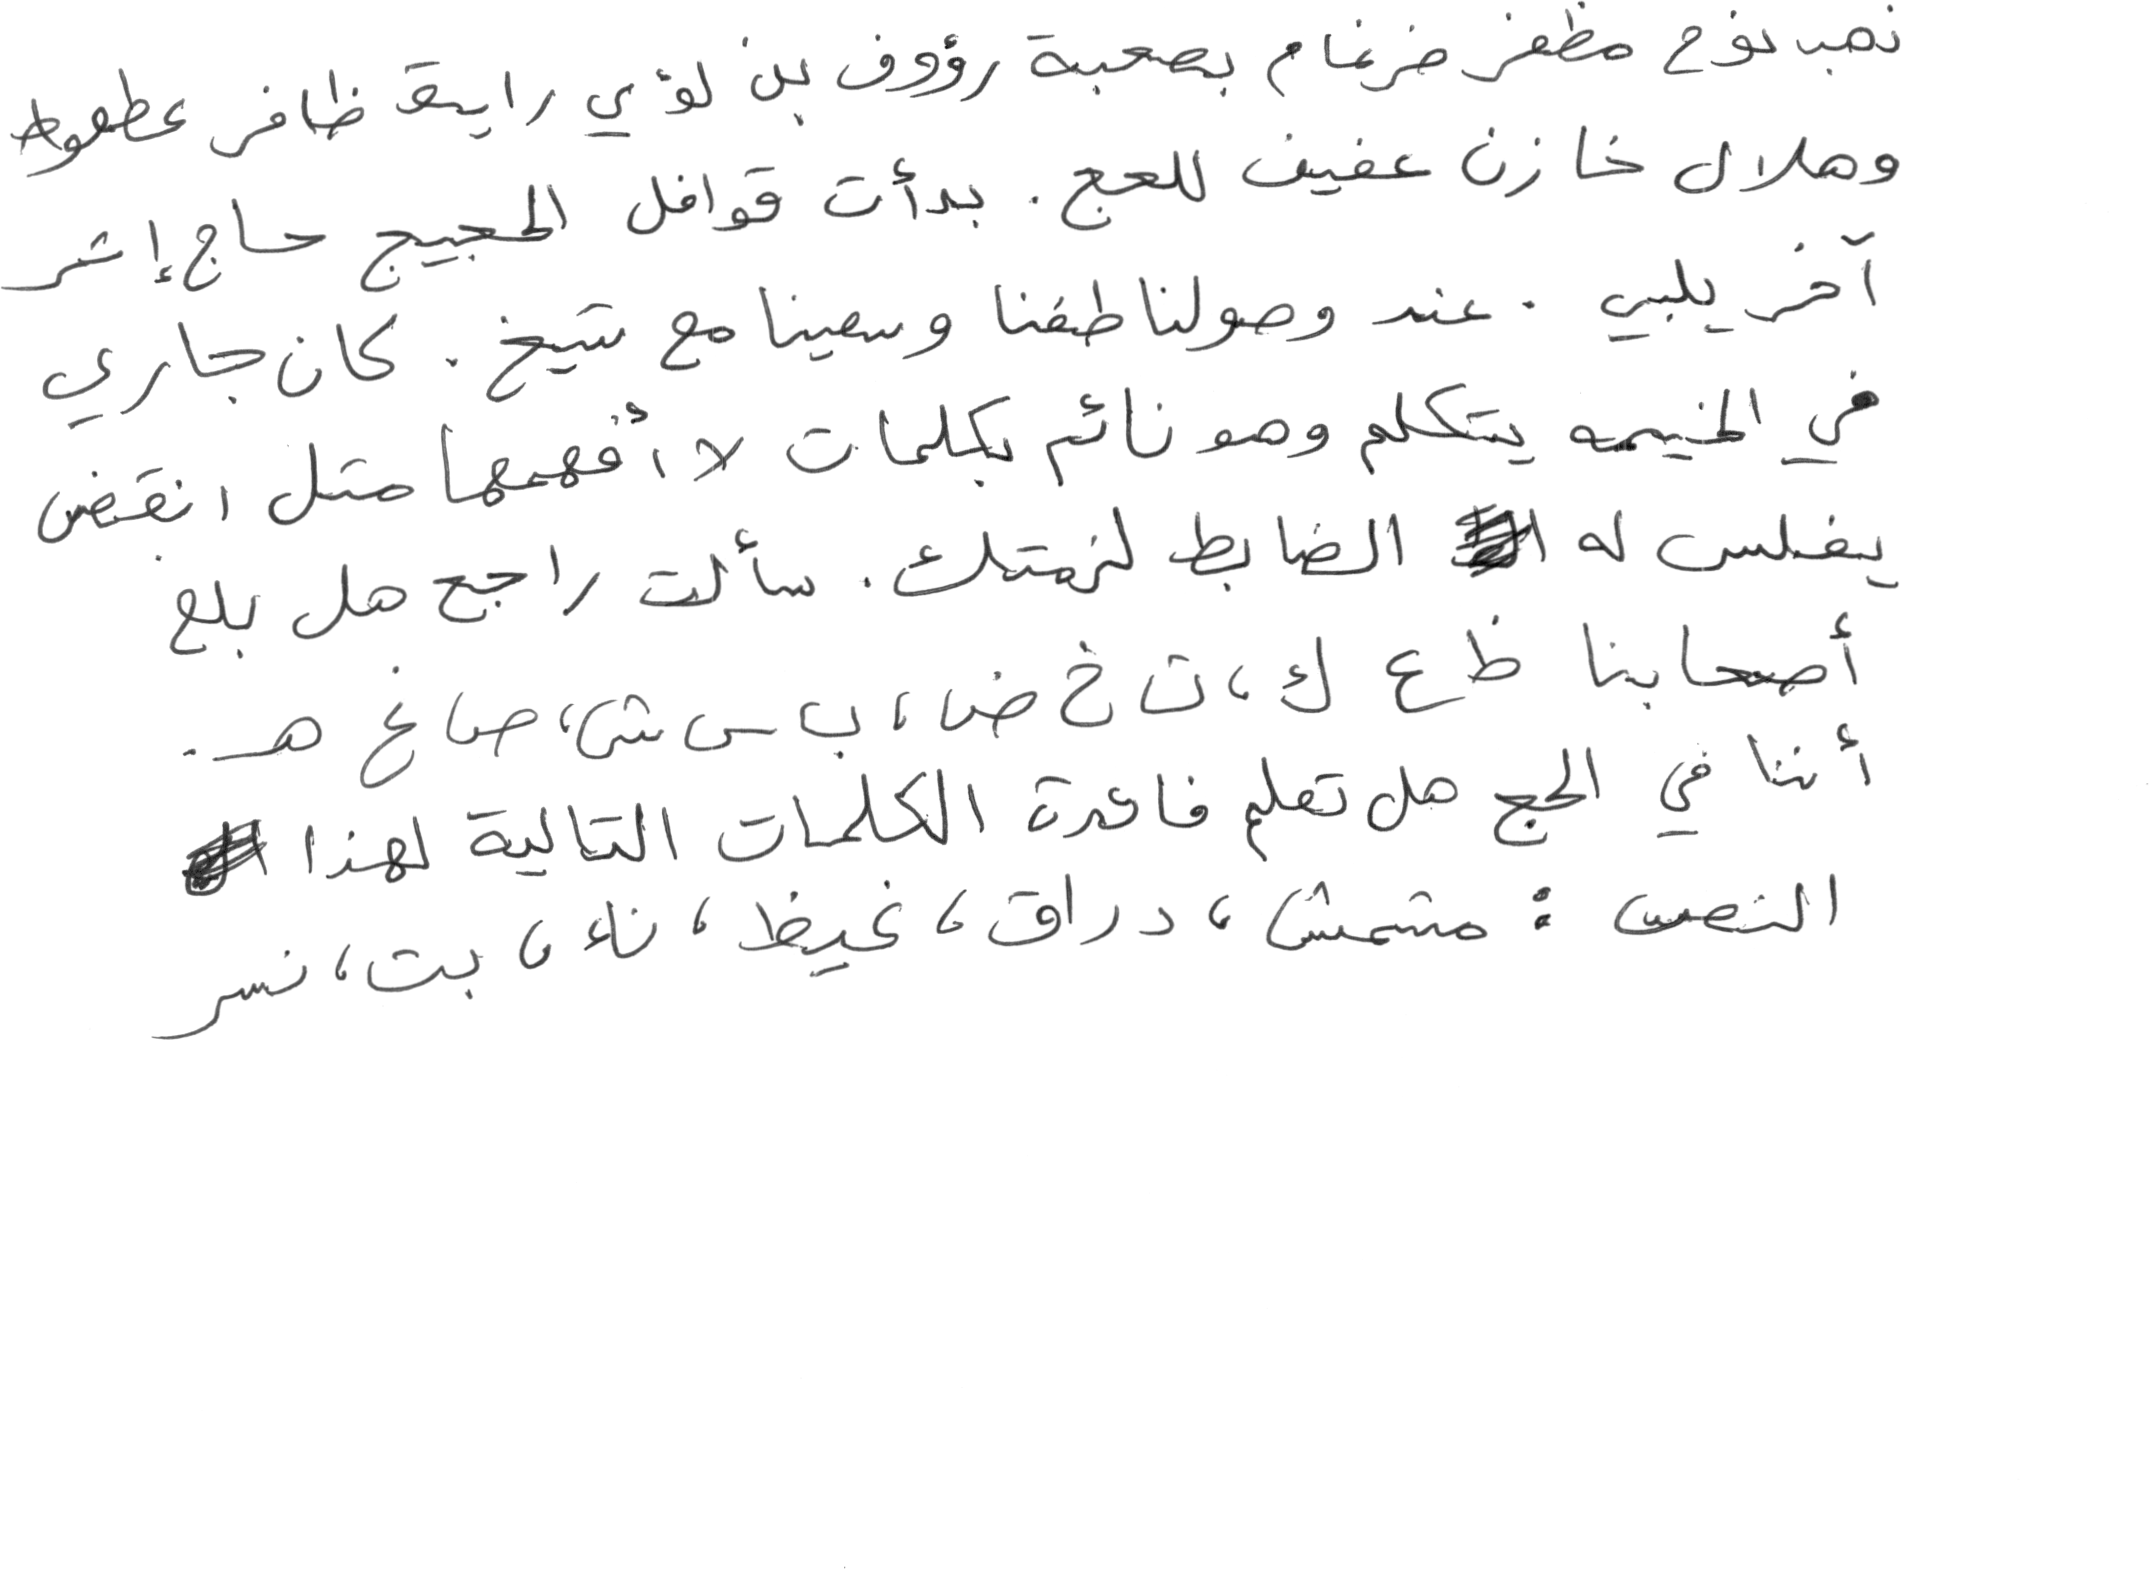 ذهب نوح مظفر ضرغام بصحبة رؤوف بن لؤي رايق ظافر عطعوط
وهلال خازن عفيف للحج . بدأت قوافل الحجيج حاج إثر
آخر يلبي . عند وصولنا طفنا وسعينا مع شيخ . كان جاري
في الخيمه يتكلم وهو نائم بكلمات لا أفهمها مثل انقض
يغلس له الضابط لزمتك . سألت راجح هل بلغ
أصحابنا ظ ع ك ، ث خ ض ، ب س ش ، ص غ هـ .
أننا في الحج هل تعلم فائدة الكلمات التالية لهذا
النص : مشمش ، دراق ، غيظ ، ناء ، بت ، نسر